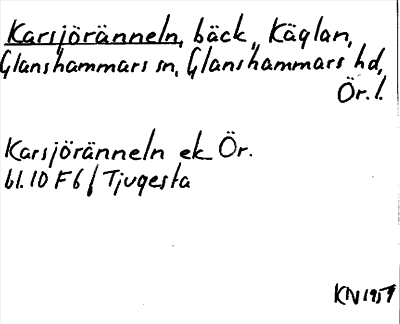 Karsjöränneln, bäck, Käglan,
Glanshammars sn, Glanshammars hd,
Ör. l.
Karsjöränneln ek Ör.
bl. 10 F 6 f Tjugesta
KN 1957